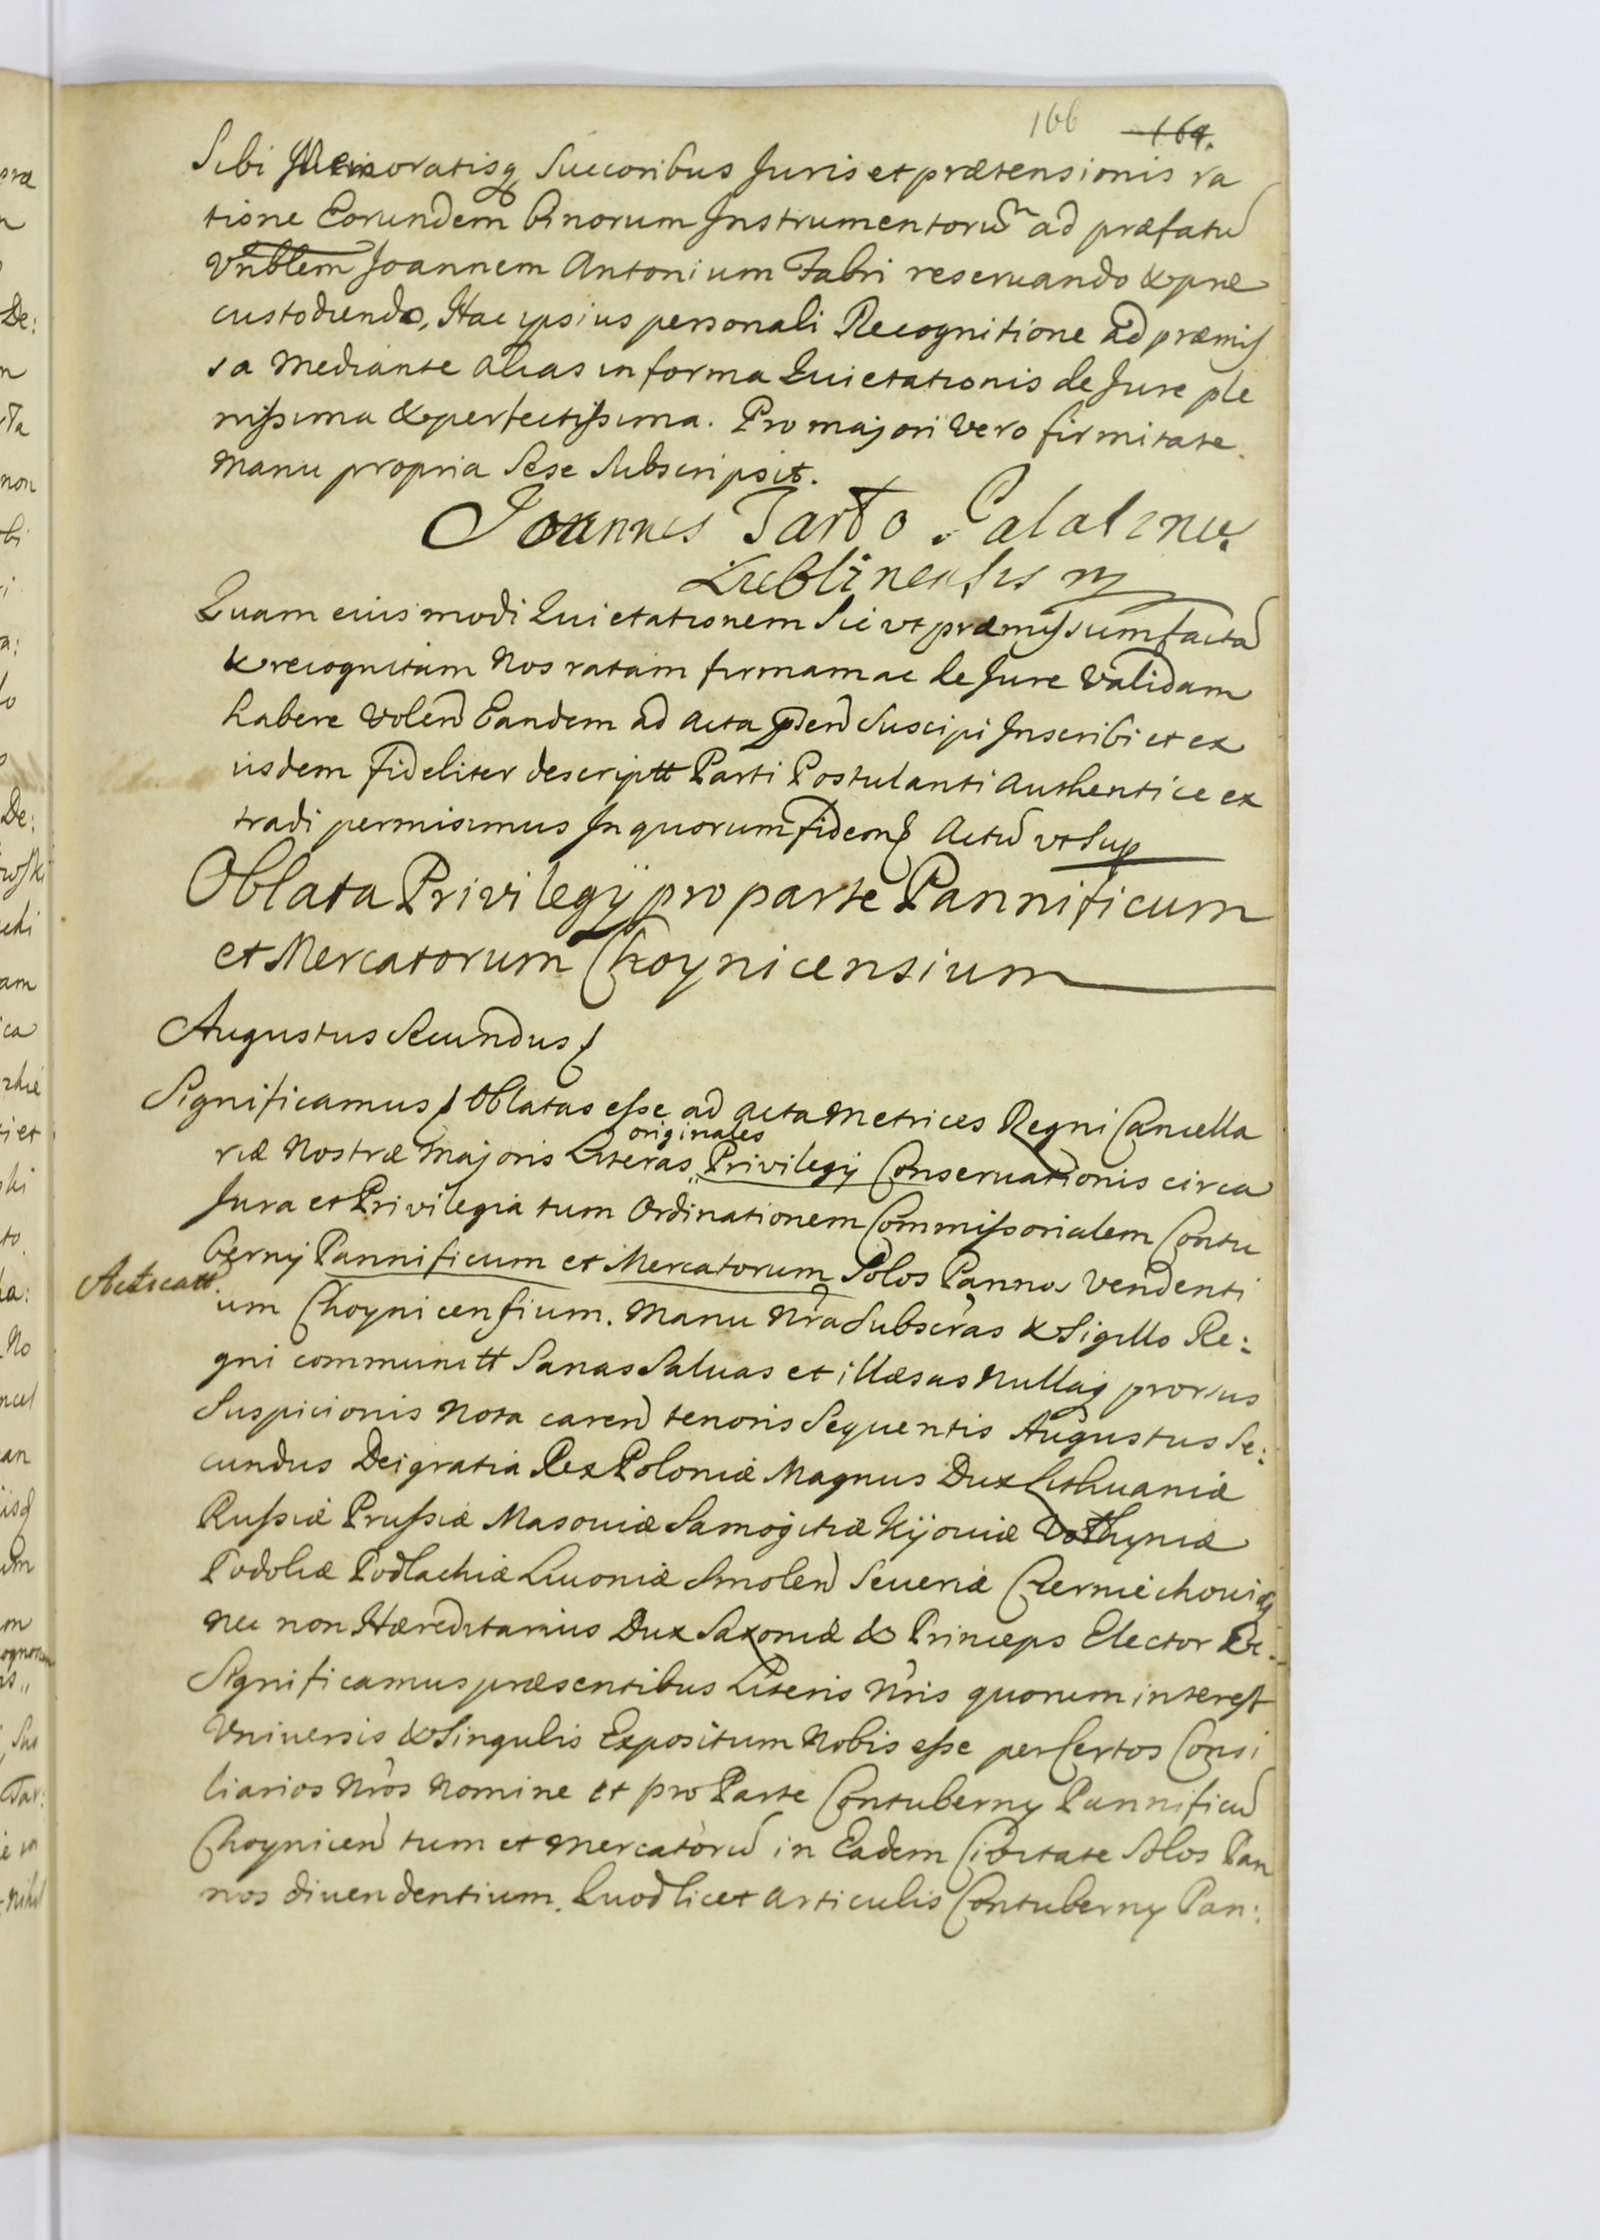 166 164.
Sibi Memoratisq Succoribus Juris et prætensionis ra
tione Eorundem binorum Instrumentorū ad præfatū
Vnblem Joannem Antonium Fabri reseruando & præ
custodiendo, Hac ipsius personali Recognitione ad præmis
sa mediante alias in forma Quietationis de Jure ple
nissima & perfectissima. Pro majori vero firmitate
manu propria Sese Subscripsit.
Joannes Tarło Palatinus
Lublinensis mp
Quam eiusmodi Quietationem Sic vt præmissum factā
& recognitam Nos ratam firmam ac de Jure validam
habere volen Eandem ad Acta psen Suscipi Inscribi et ex
iisdem fideliter descriptt Parti Postulanti Authentice ex
tradi permisimus In quorum fidem Actū vt Sup
Oblata Privilegij pro parte Pannificum
et Mercatorum Choynicensium
Augustus Secundus
Significamus Oblatas esse ad acta Metrices Regni Cancella
riæ Nostræ Majoris Literas originales Privilegij Conseruationis circa
Jura et Privilegia tum Ordinationem Commissorialem Contu
bernij Pannificum et Mercatorum Solos Pannos vendenti
um Choynicensium. Manu Nra Subscras & Sigillo Re:
gni communitt Sanas Saluas et illæsas Nullaq prorsus
Suspicionis Nota caren tenoris Sequentis Augustus Se:
cundus Dei gratia Rex Poloniæ Magnus Dux Lithuaniæ
Russiæ Prussiæ Masouiæ Samogitiæ Kijouiæ Volhyniæ
Podoliæ Podlachiæ Liuoniæ Smolen Seueriæ Czerniechouiæq
Nec non Hæreditarius Dux Saxoniæ & Princeps Elector &c.
Significamus præsentibus Literis Nris quorum interest
Vniuersis & Singulis Expositum Nobis esse per Certos Consi
liarios Nros Nomine et pro Parte Contuberny Pannificū
Choynicen tum et mercatorū in Eadem Ciuitate Solos Pan
nos diuendentium. Quod licet articulis Contuberny Pan: